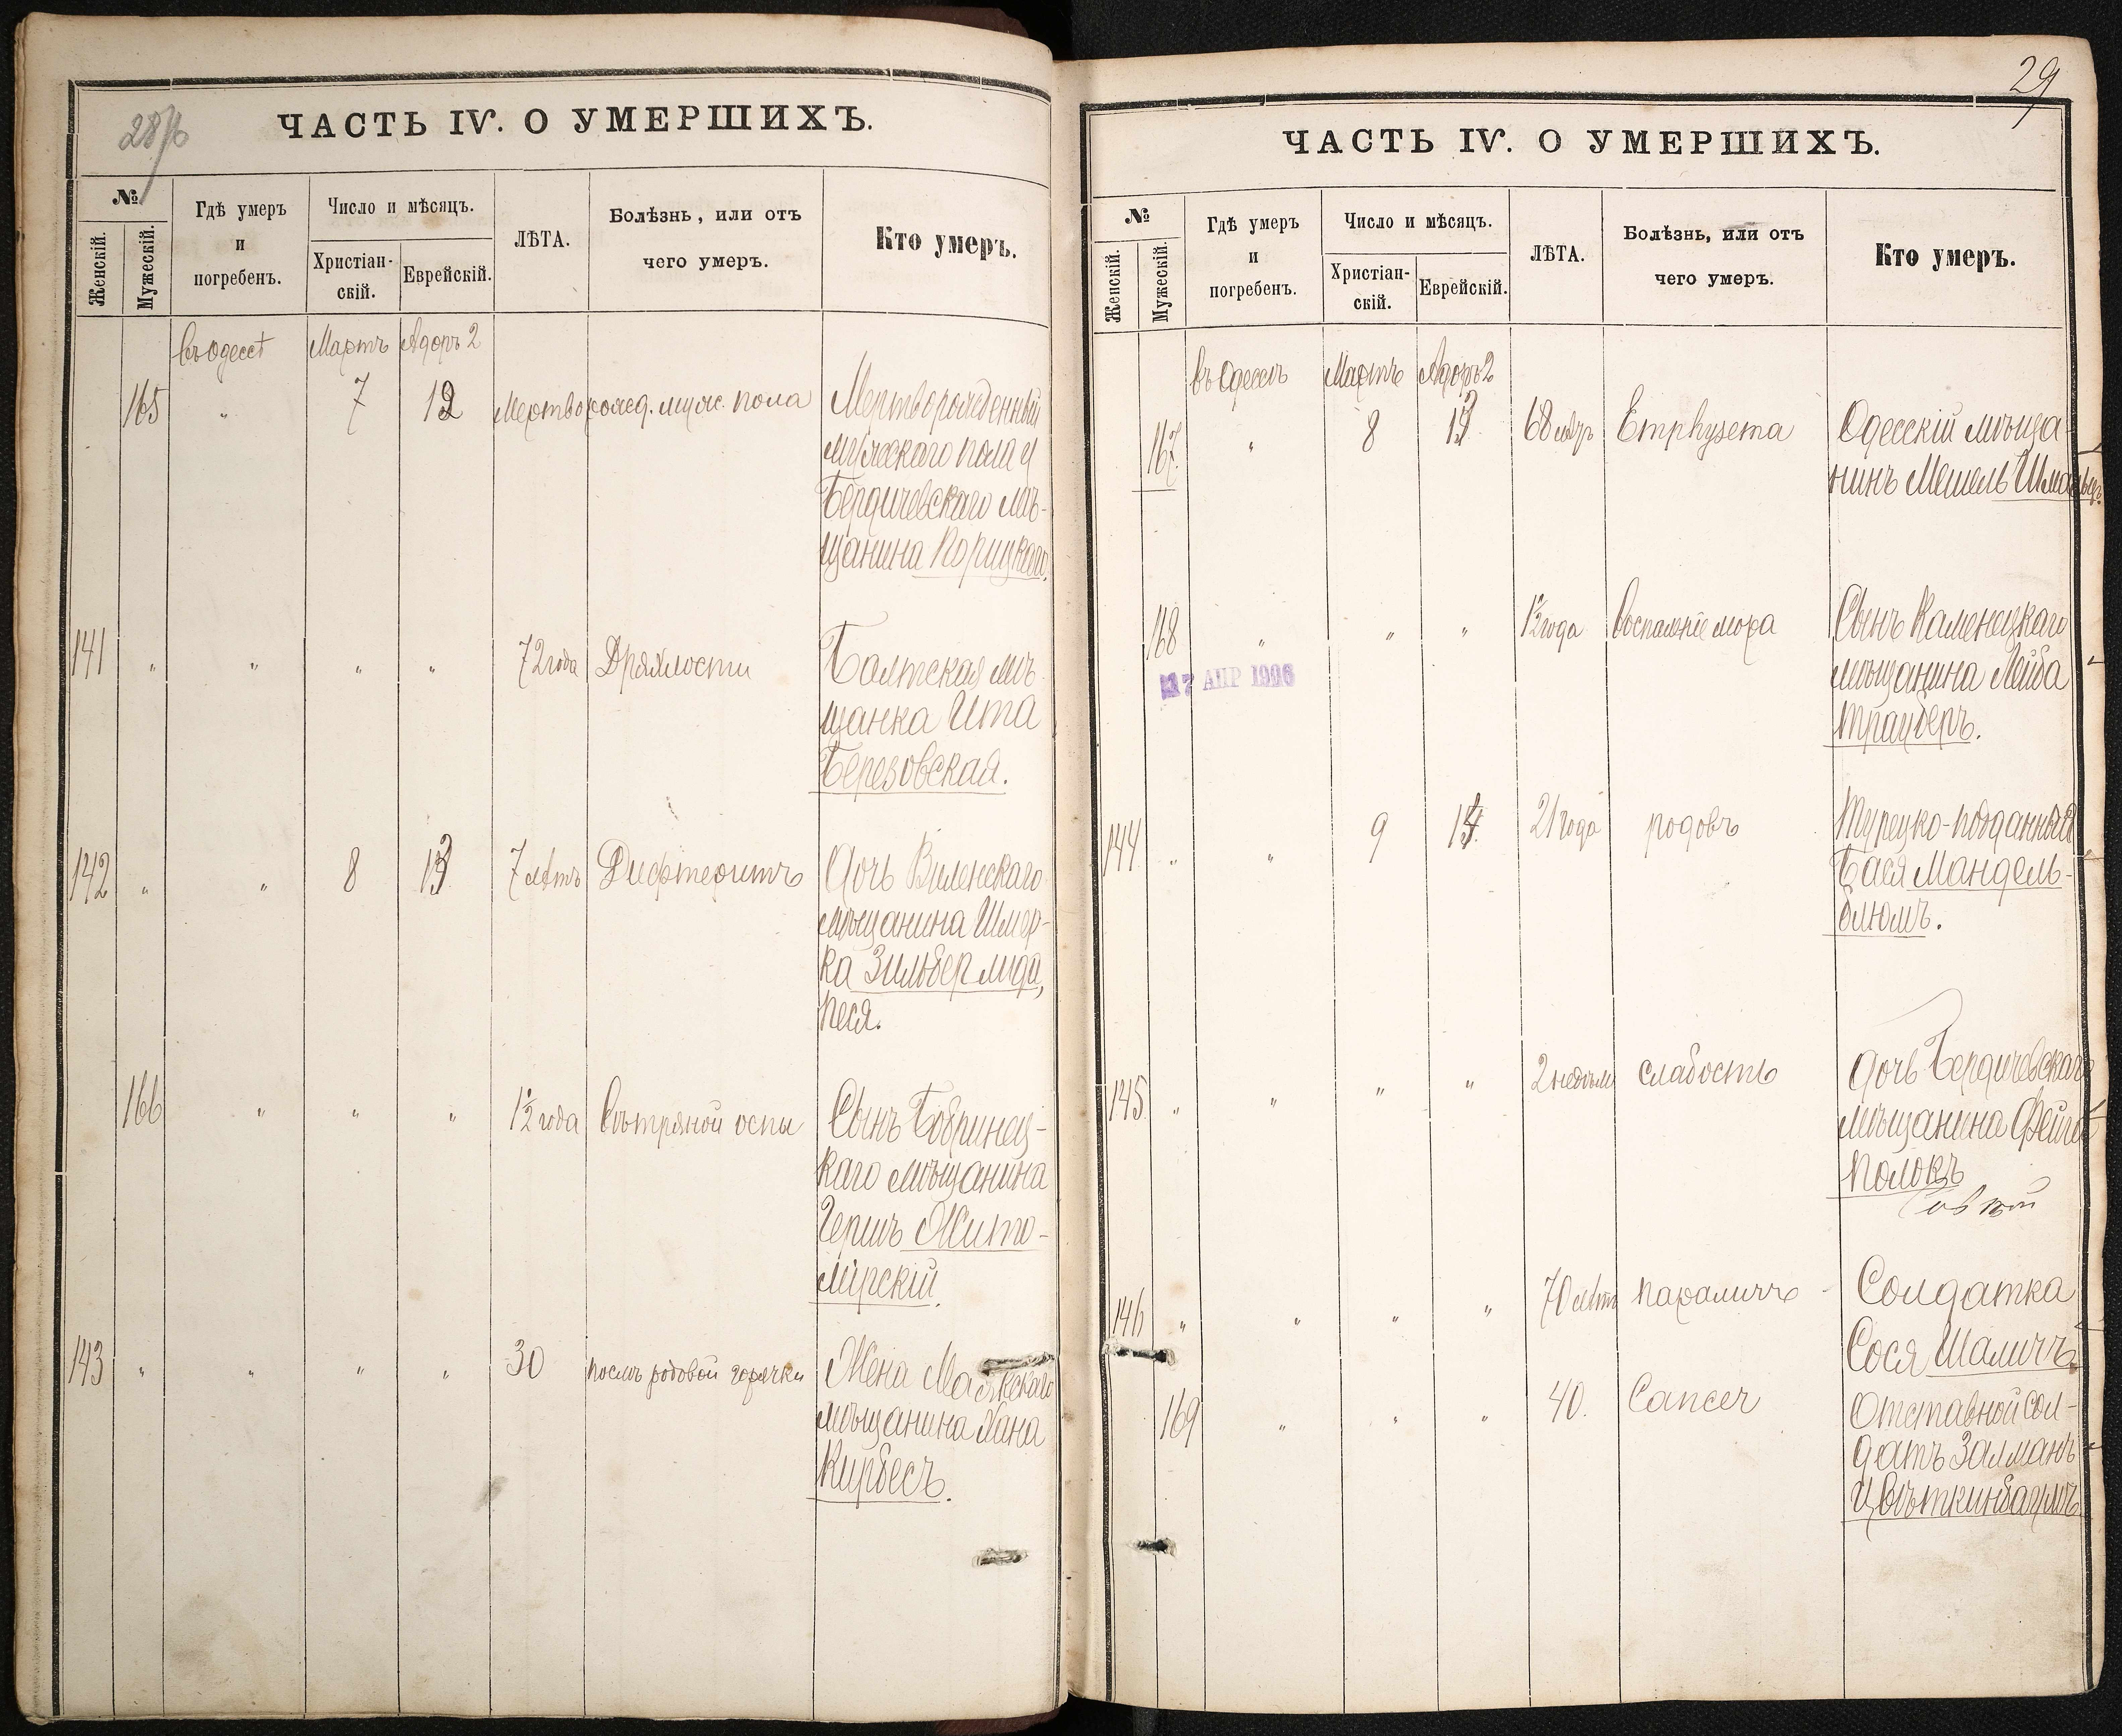 28/б
ЧАСТЬ IV. О УМЕРШИХЪ.
№
Женскій.
Мужескій.
Гдѣ умеръ
и
погребенъ.
Число и мѣсяцъ.
Христіан-
скій.
Еврейскій.
ЛѢТА.
Болѣзнь, или отъ
чего умеръ.
Кто умеръ.
въ Одессѣ Мартъ Адоръ 2
165 " 7 12 Мертворожд. муж. пола Мертворожденный
мужескаго пола у
Бердичевскаго мѣ-
щанина Корицкаго.
141 " " " " 72 года Дряхлости Балтская мѣ-
щанка Ита
Березовская.
142 " " 8 13 7 лѣтъ Дифтеритъ Дочь Виленскаго
мѣщанина Шмер-
ка Зильбермида,
Песя.
166 " " " 1½ года Вѣтряной оспы Сынъ Бобринец-
каго мѣщанина
Гершъ Жито-
мірскій.
143 " " " " 30 послѣ родовой горячки Жена Маякскаго
мѣщанина Хана
Кирбесъ.
29
ЧАСТЬ IV. О УМЕРШИХЪ.
№
Женскій.
Мужескій.
Гдѣ умеръ
и
погребенъ.
Число и мѣсяцъ.
Христіан-
скій.
Еврейскій.
ЛѢТА.
Болѣзнь, или отъ
чего умеръ.
Кто умеръ.
въ Одессѣ Мартъ Адоръ 2
167 " 8 13 68 лѣтъ Emphysema Одесскій мѣща-
нинъ Мешель
168 " " " 1½ года Воспаленіе мозга Сынъ Каменецкаго
7 АПР 1996
мѣщанина Лейба
Трауберъ.
144 " " 9 14 21 года родовъ Турецко-подданная
Бася Мандель-
блюмъ.
145 " " " " 2 недѣли слабость Дочь Бердичевскаго
мѣщанина Фейга
Полокъ
146 " " " " 70 лѣтъ параличъ Солдатка
Сося Шаличъ.
169 " " " 40. Cancer Отставной сол-
датъ Залманъ
Цвѣткинбаумъ.